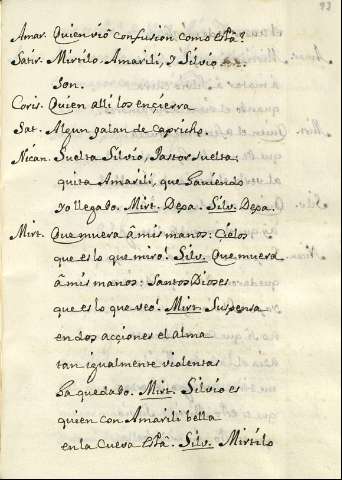 93
Amar. Quien vió confusion como está?
Satir. Mirtilo, Amarili, y Silvio
son.
Coris. Quien alli los encierra
Sat. Algun galan de capricho.
Nican. Suelta Silvio, Pastor suelta;
quita Amarili, que haviendo
yo llegado. Mirt. Dexa. Silv. Dexa.
Mirt. Que muera â mis manos: Cielos
que es lo que miro! Silv. Que muera
â mis manos: Santos Dioses
que es lo que veo! Mirt. Suspensa
en dos acciones el alma
tan igualmente violentas
ha quedado. Mirt. Silvio es
quien con Amarili bella
en la Cueva está. Silv. Mirtilo